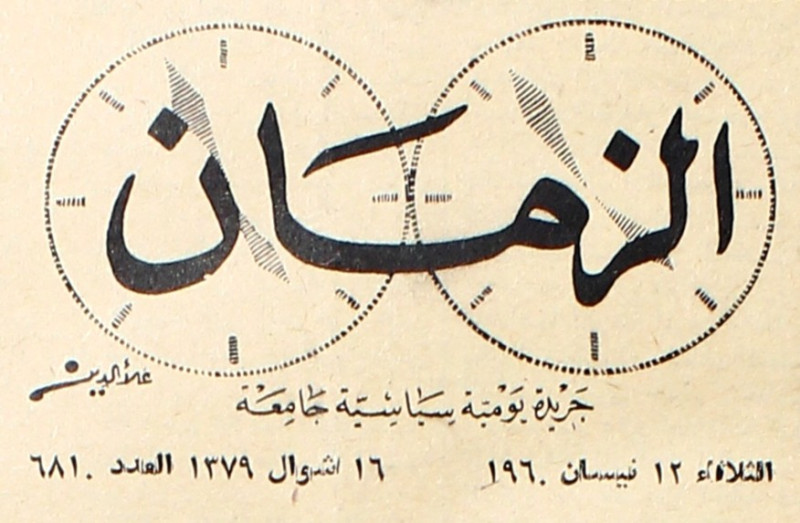 الزمان
علاءالدين
جريدة يومية سياسية جامعة
الثلاثاء ١٢ نيسان ١٩٦٠ ١٦ شوال ١٣٧٩ العدد ٦٨١٠